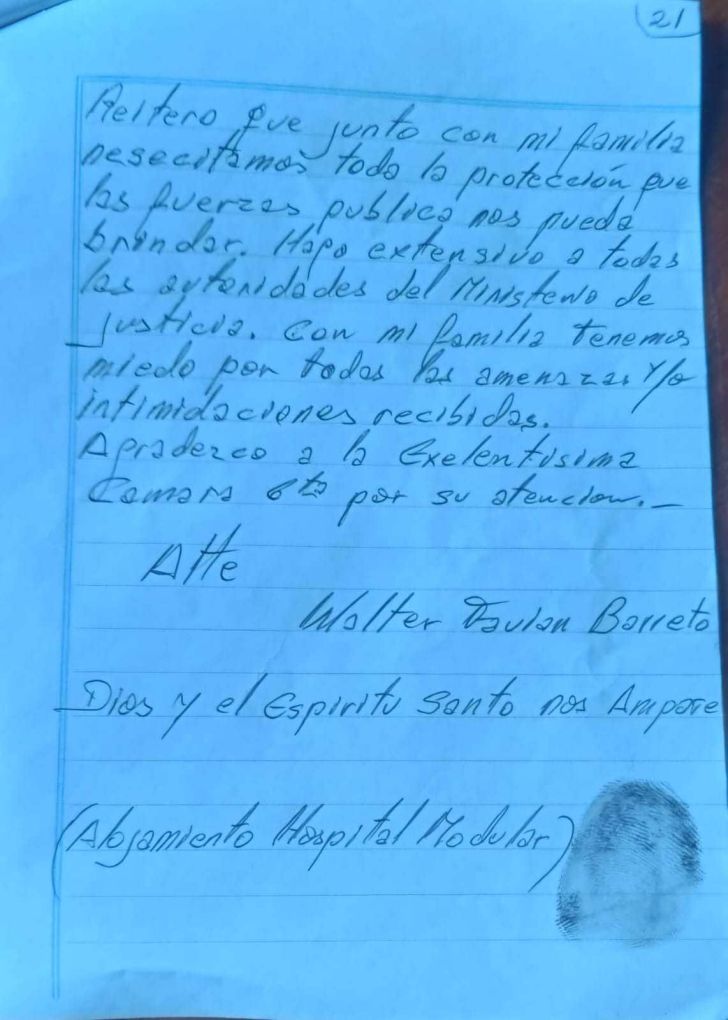 21
Reitero que junto con mi familia
nesecitamos toda la protección que
las fuerzas publica nos pueda
brindar. Hago extensivo a todas
las autoridades del Ministerio de
justicia. Con mi familia tenemos
miedo por todas las amenazas y/o
intimidaciones recibidas.
Agradezco a la Exelentisima
Camara 6ta por su atencion.—
Atte
Walter Favian Barreto
Dios y el Espiritu Santo nos Ampare
(Alojamiento Hospital Modular)